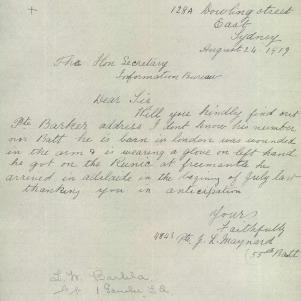 +
128A Dowling Street
East
Sydney
August 24 1919
The Hon Secretary
Information Bureau
Dear Sir
Will you kindly find out
Pte Barker address I dont know his number
nor Batt he is barn in london was wounded
in the arm & is wearing a glove on left hand
he got on the Runic at freemantle he
arrived in adelaide in the begining of July last
thanking you in anticipation
Yours
Faithfully
Pte J. L. Maynard
55th Batt
L. W. Barker